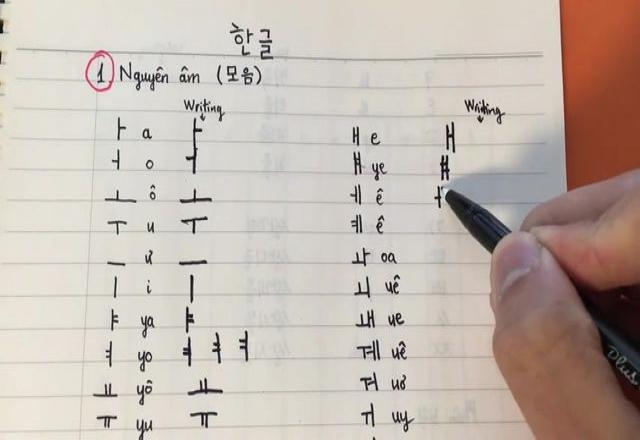 한글
1 Nguyên âm (모음)
Writing Writing
ㅏ a ㅏ ㅐ e ㅐ
ㅓ o ㅓ ㅒ ye ㅒ
ㅗ ô ㅗ ㅔ ê ㅓ
ㅜ u ㅜ ㅖ ê
ㅡ ư ㅡ ㅘ oa
ㅣ i ㅣ ㅚ uê
ㅑ ya ㅑ ㅙ ue
ㅕ yo ㅕ ㅕ ㅕ ㅞ uê
ㅛ yô ㅛ ㅝ uơ
ㅠ yu ㅠ ㅟ uy
Plus